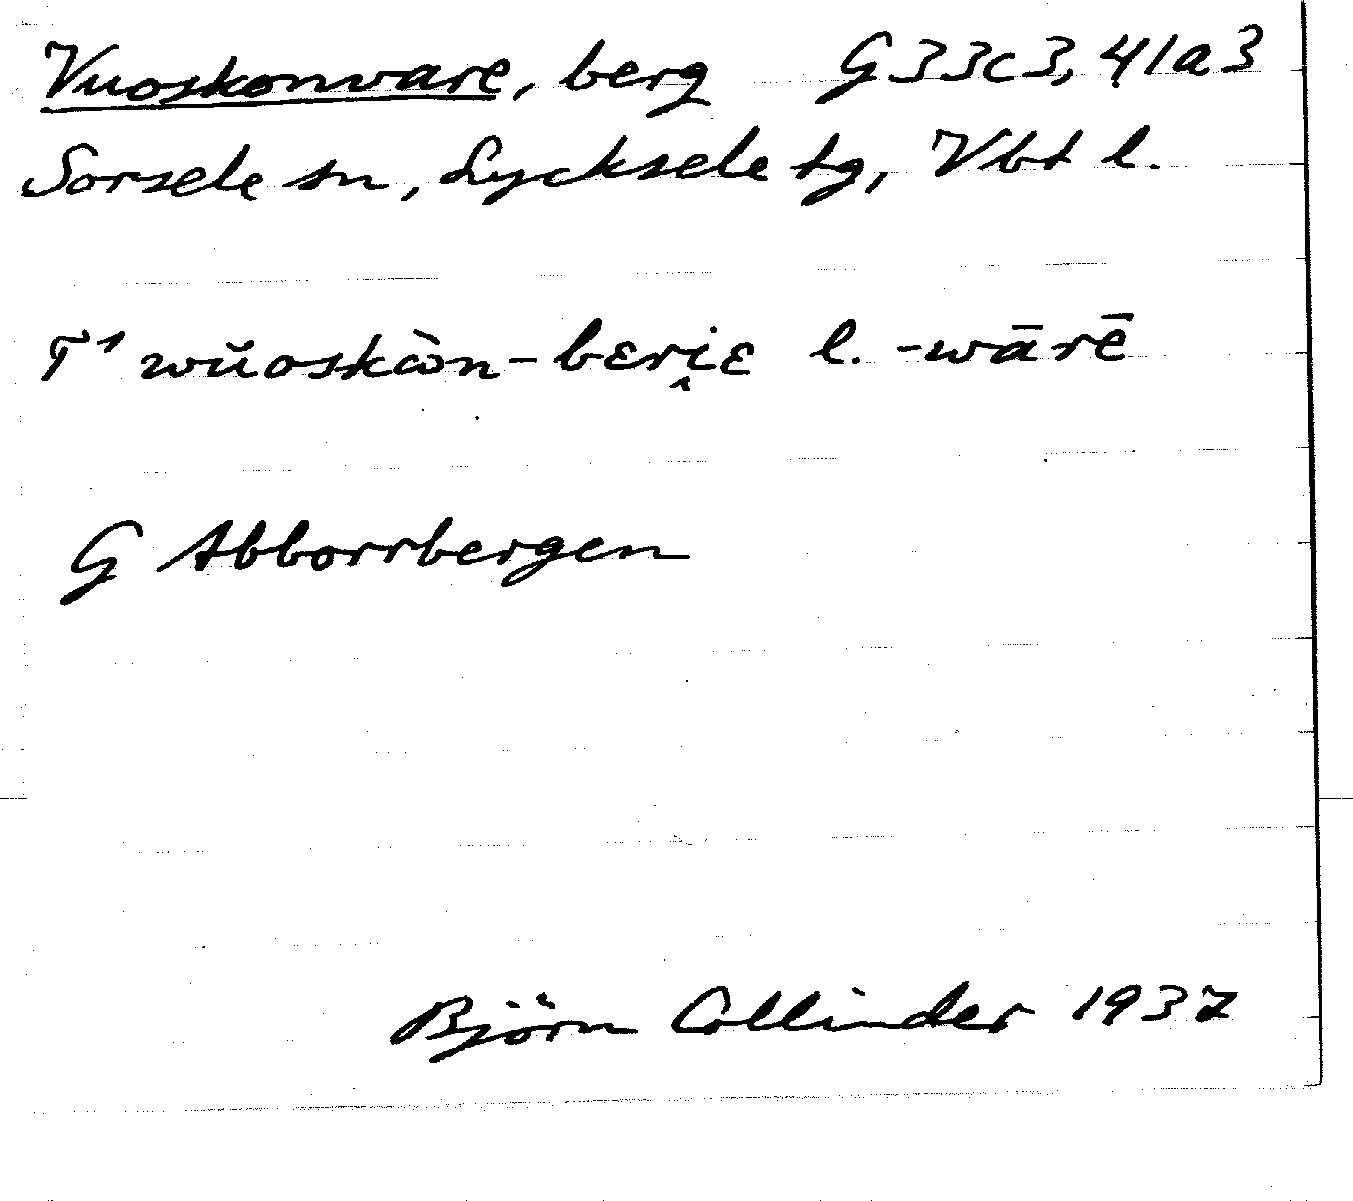 Vuoskonvare, berg G 33c3, 41a3
Sorsele sn, Lycksele tg, Vbt l.
T¹ wŭoskòn-bɛri̭ɛ l. -wārē
G Abborrbergen
Björn Collinder 1937